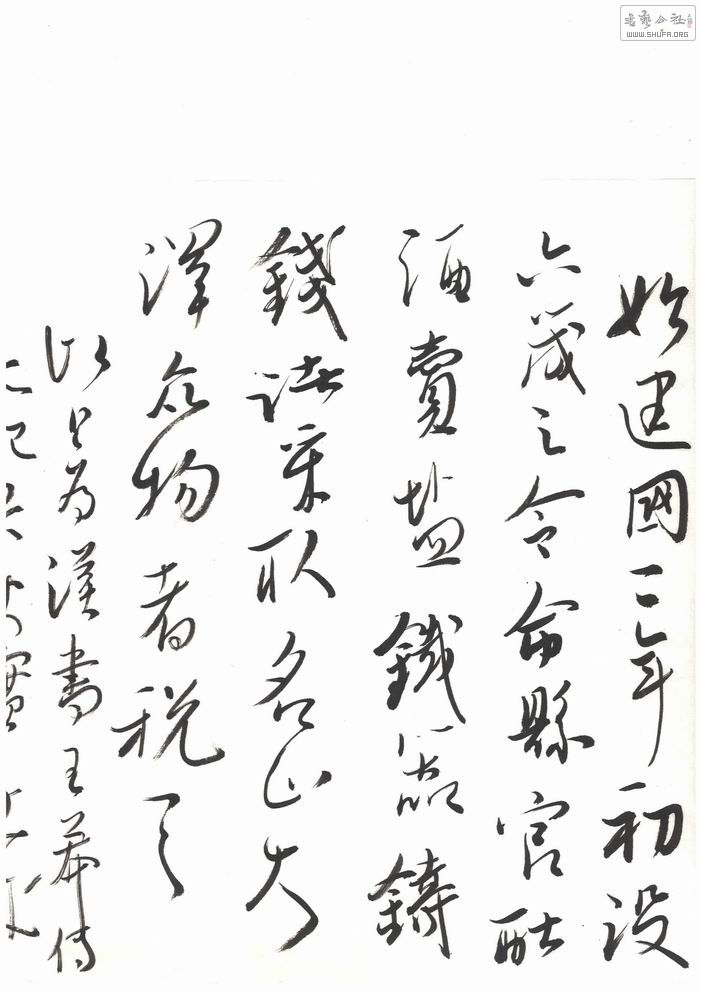 書藝公社
WWW.SHUFA.ORG
始建國三年初設
六筦之令命縣官酤
酒賣盐鐵器鑄
錢諸采取名山大
澤众物者税之
以上為漢書王莽傳